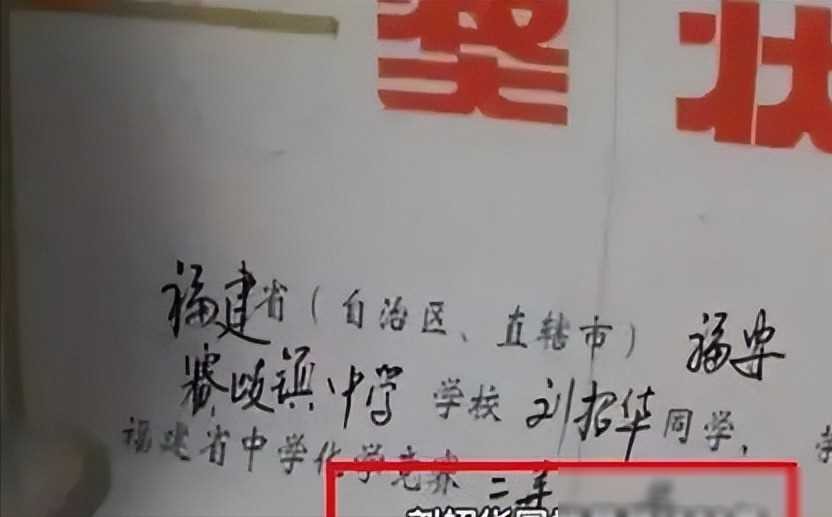 奖状
福建省（自治区、直辖市）福安
赛岐镇中学 学校 刘招华同学，
福建省中学化学竞赛 二等